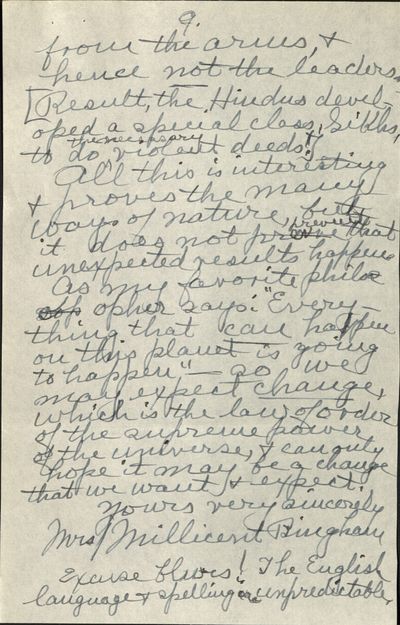 9.
from the arms, &
hence not the leaders.
[Result, the Hindus devel-
oped a special class, Sikhs,
the necessary
to do violent deeds!]
All this is interesting
& proves the many
ways of nature, but
it does not prove that
unexpected results happens
As my favorite philos
opher says: "Every-
thing that can happen
on this planet is going
to happen" — so we
may expect change,
which is the law of order
of the supreme power
of the universe, & can only
hope it may be a change
that we want & expect.
Yours very sincerely
Mrs Millicent Bingham
Excuse blurs! The English
language & spelling unpredictable.